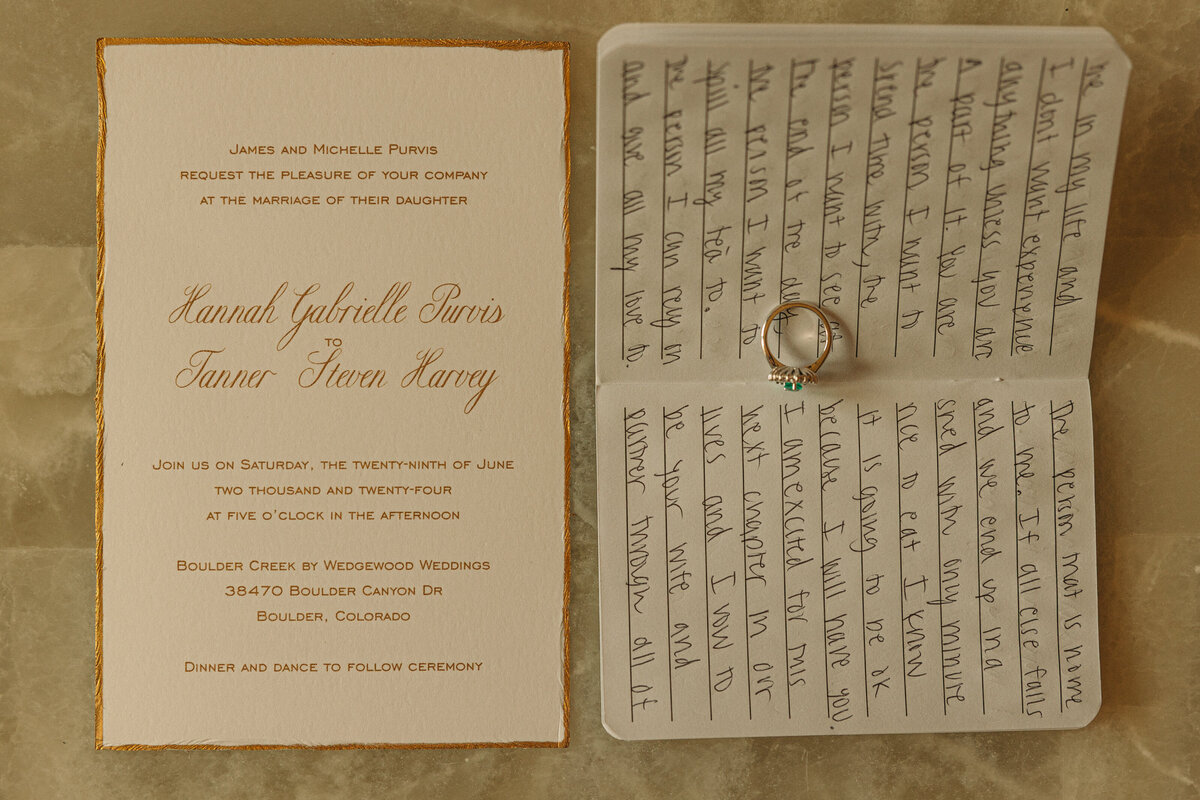 JAMES AND MICHELLE PURVIS
REQUEST THE PLEASURE OF YOUR COMPANY
AT THE MARRIAGE OF THEIR DAUGHTER
Hannah Gabrielle Purvis
TO
Tanner Steven Harvey
JOIN US ON SATURDAY, THE TWENTY-NINTH OF JUNE
TWO THOUSAND AND TWENTY-FOUR
AT FIVE O'CLOCK IN THE AFTERNOON
BOULDER CREEK BY WEDGEWOOD WEDDINGS
38470 BOULDER CANYON DR
BOULDER, COLORADO
DINNER AND DANCE TO FOLLOW CEREMONY
me in my life and
I dont want experience
anything unless you are
a part of it. You are
the person I want to
spend time with, the
person I want to see as
the end of the day,
the person I want to
spill all my tea to.
the person I can rely on
and give all my love to.
the person that is home
to me. If all else fails
and we end up in a
shed with only minute
rice to eat I know
it is going to be ok
because I will have you.
I am excited for this
next chapter in our
lives and I vow to
be your wife and
partner through all of